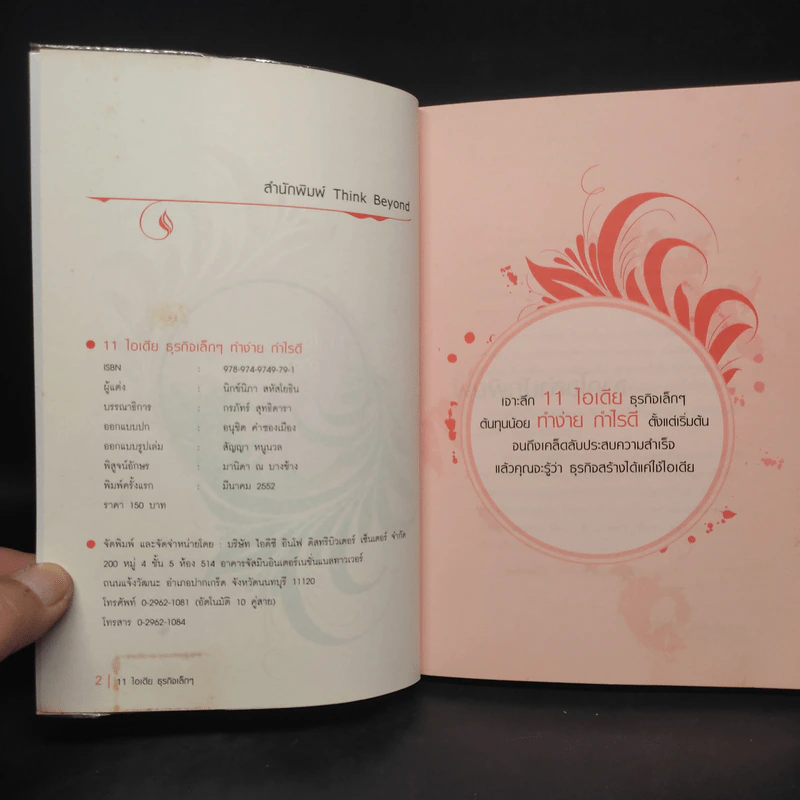 สำนักพิมพ์ Think Beyond
11 ไอเดีย ธุรกิจเล็กๆ ทำง่าย กำไรดี
ISBN : 978-974-9749-79-1
ผู้แต่ง : นิกข์นิภา สหัสโยธิน
บรรณาธิการ : กรภัทร์ สุทธิดารา
ออกแบบปก : อนุชิต คำซองเมือง
ออกแบบรูปเล่ม : สัญญา หนูนวล
พิสูจน์อักษร : มานิดา ณ บางช้าง
พิมพ์ครั้งแรก : มีนาคม 2552
ราคา 150 บาท
จัดพิมพ์ และจัดจำหน่ายโดย : บริษัท ไอดีซี อินโฟ ดิสทริบิวเตอร์ เซ็นเตอร์ จำกัด
200 หมู่ 4 ชั้น 5 ห้อง 514 อาคารจัสมินอินเตอร์เนชั่นแนลทาวเวอร์
ถนนแจ้งวัฒนะ อำเภอปากเกร็ด จังหวัดนนทบุรี 11120
โทรศัพท์ 0-2962-1081 (อัตโนมัติ 10 คู่สาย)
โทรสาร 0-2962-1084
2 | 11 ไอเดีย ธุรกิจเล็กๆ
เจาะลึก 11 ไอเดีย ธุรกิจเล็กๆ
ต้นทุนน้อย ทำง่าย กำไรดี ตั้งแต่เริ่มต้น
จนถึงเคล็ดลับประสบความสำเร็จ
แล้วคุณจะรู้ว่า ธุรกิจสร้างได้แค่ใช้ไอเดีย